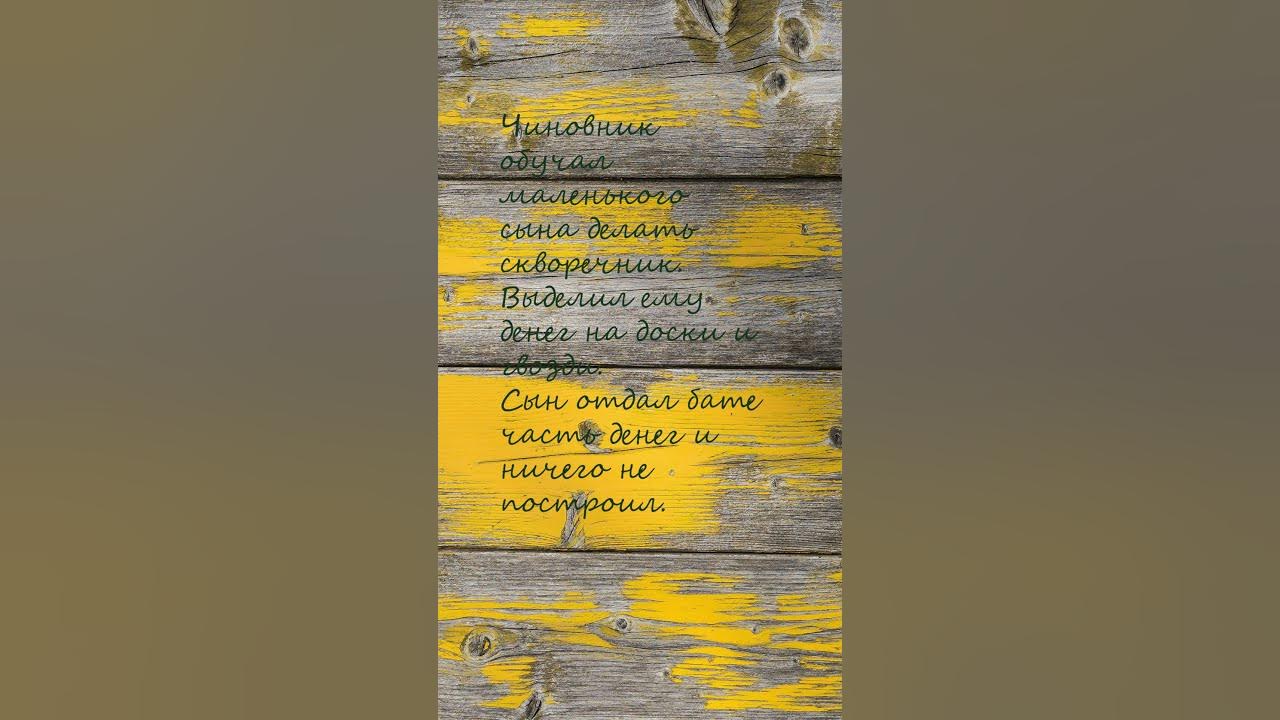 Чиновник
обучал
маленького
сына делать
скворечник.
Выделил ему
денег на доски и
гвозди.
Сын отдал бате
часть денег и
ничего не
построил.